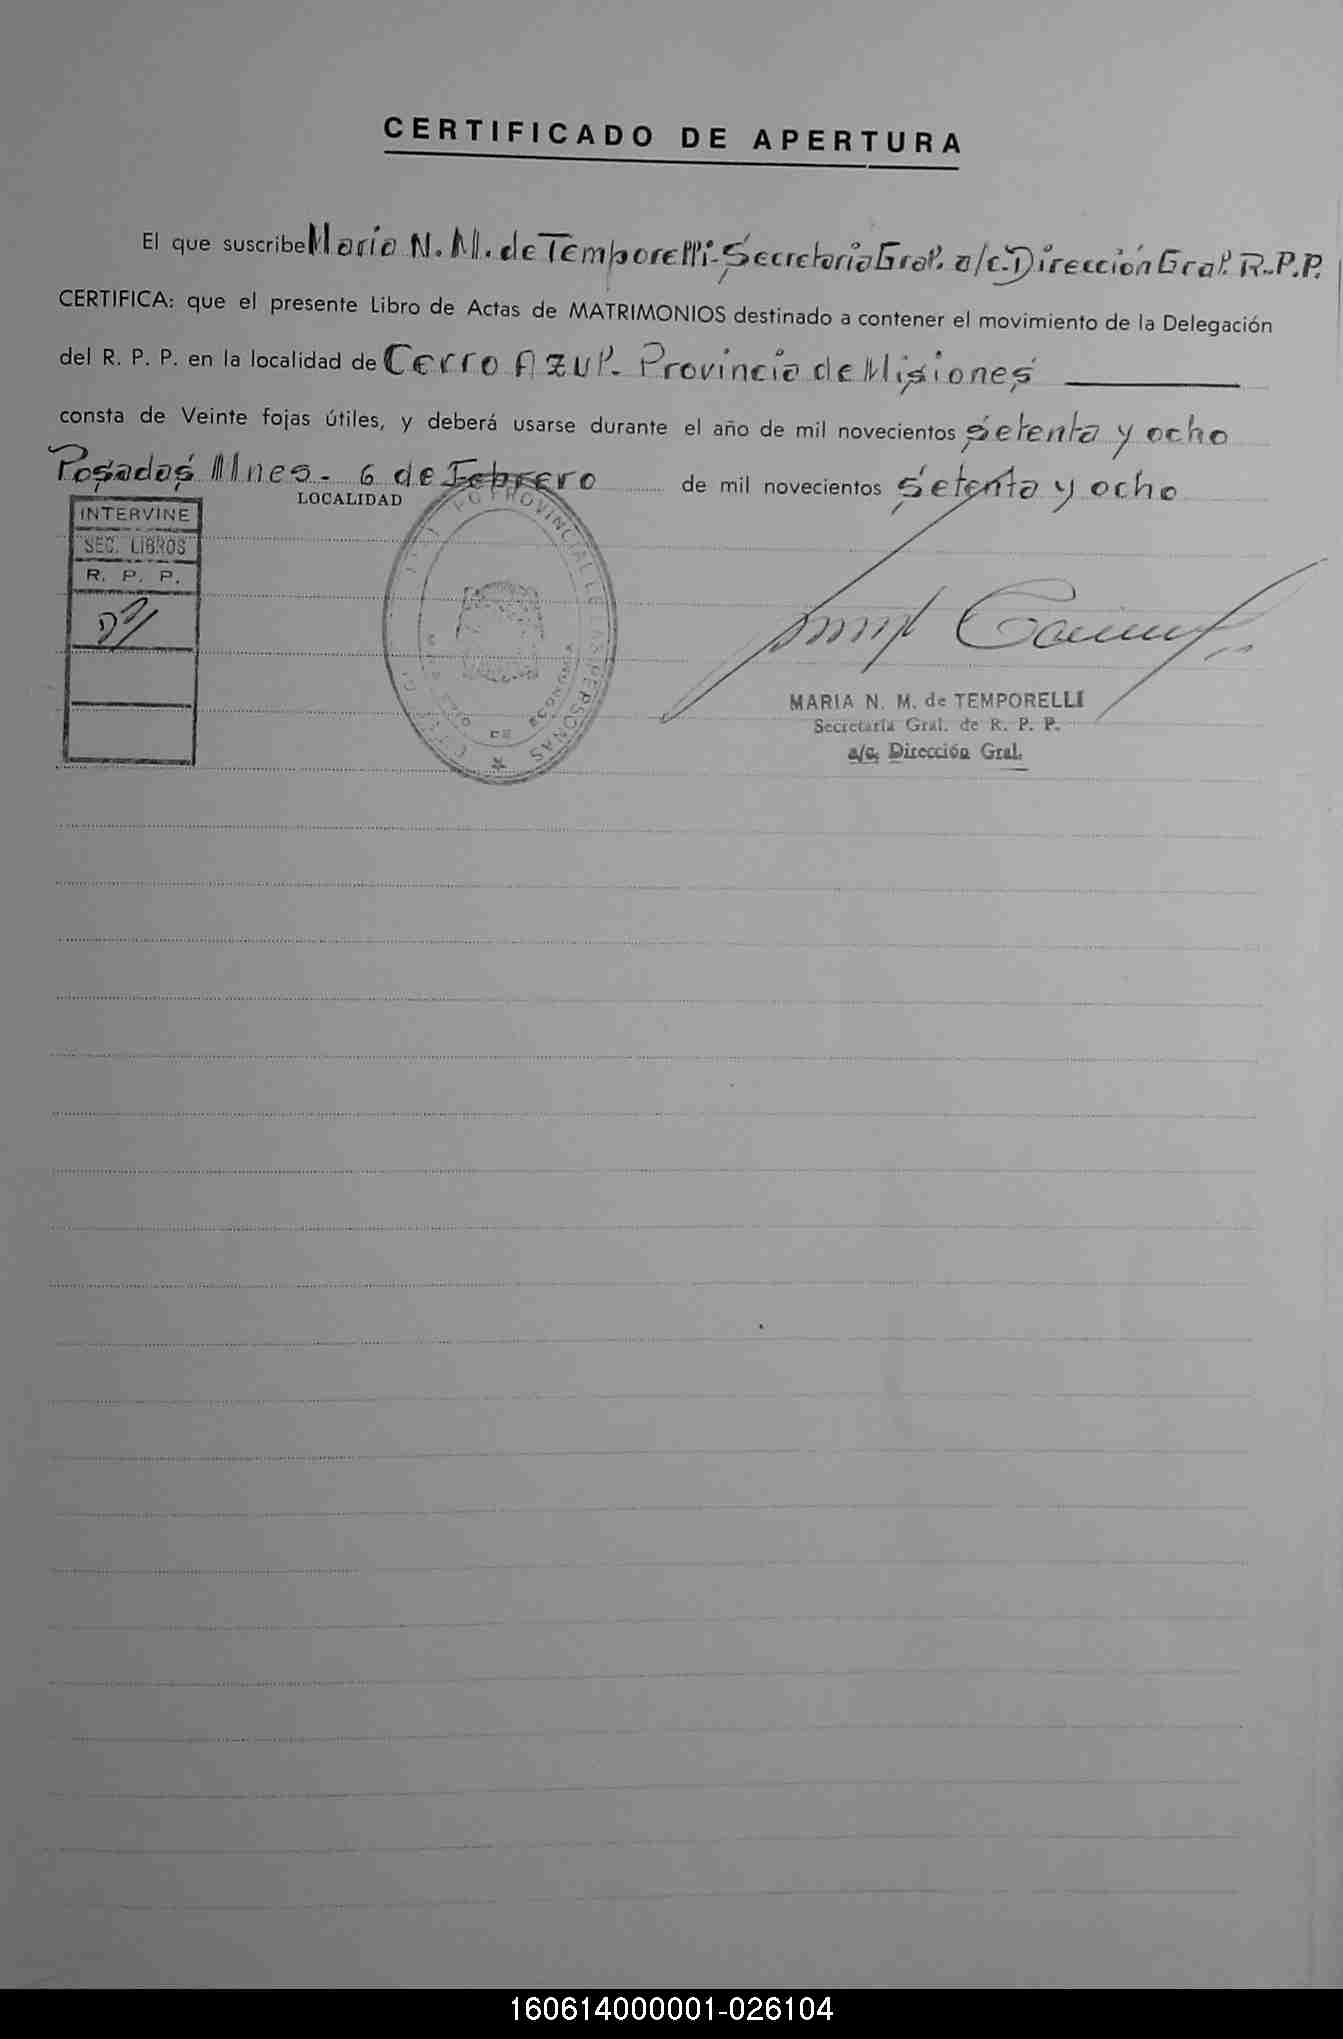 CERTIFICADO DE APERTURA
El que suscribe Maria N. M. de Temporelli-Secretaria Gral. a/c. Dirección Gral. R.P.P.
CERTIFICA: que el presente Libro de Actas de MATRIMONIOS destinado a contener el movimiento de la Delegación
del R. P. P. en la localidad de Cerro Azul. Provincia de Misiones
consta de Veinte fojas útiles, y deberá usarse durante el año de mil novecientos setenta y ocho
Posadas Mnes. 6 de Febrero de mil novecientos setenta y ocho
LOCALIDAD
INTERVINE
SEC. LIBROS
R. P. P.
PROVINCIAL DE LAS PERSONAS
MARIA N. M. de TEMPORELLI
Secretaria Gral. de R. P. P.
a/c. Dirección Gral.
160614000001-026104